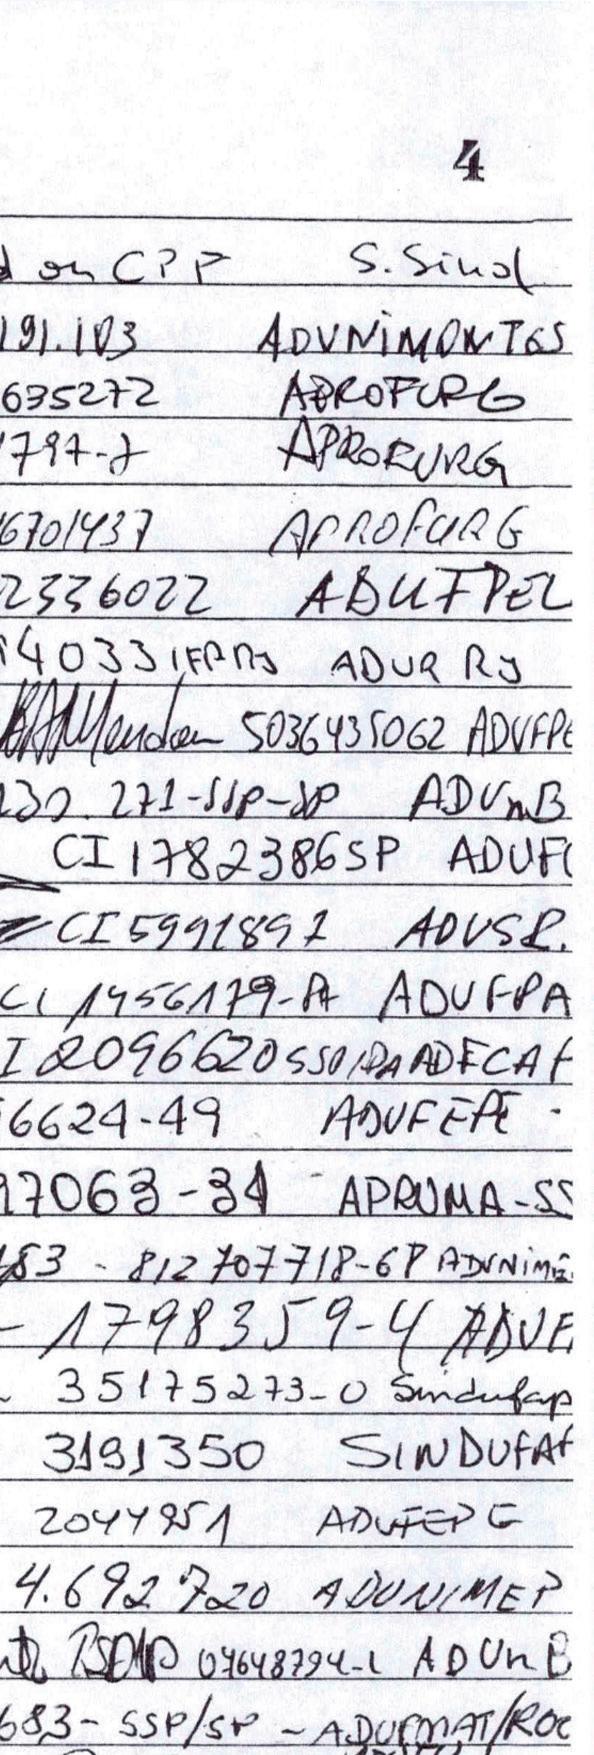 4
d ou CPF S. Sind
191.103 ADUNIMONTES
635272 APROFURG
797-7 APROFURG
6701437 APROFURG
2336022 ADUFPEL
14033 IFPRJ ADUR RJ
5036435062 ADUFPE
130.271-SSP-SP ADUnB
CI 17823865SP ADUF
CI 5991891 ADUSP.
CI 1456179-PA ADUFPA
I 2096620 SSP/PA ADFCAP
6624-49 ADUFEPE
97063-34 APRUMA-SS
183 - 812707718-68 ADUNIME
- 1798359-4 ADUF
35175273-0 Sindufap
3191350 SINDUFAP
2044951 ADUFEPE
4.692.720 ADUNIMEP
04648794-2 ADUnB
683- SSP/SP - ADUFMAT/ROO